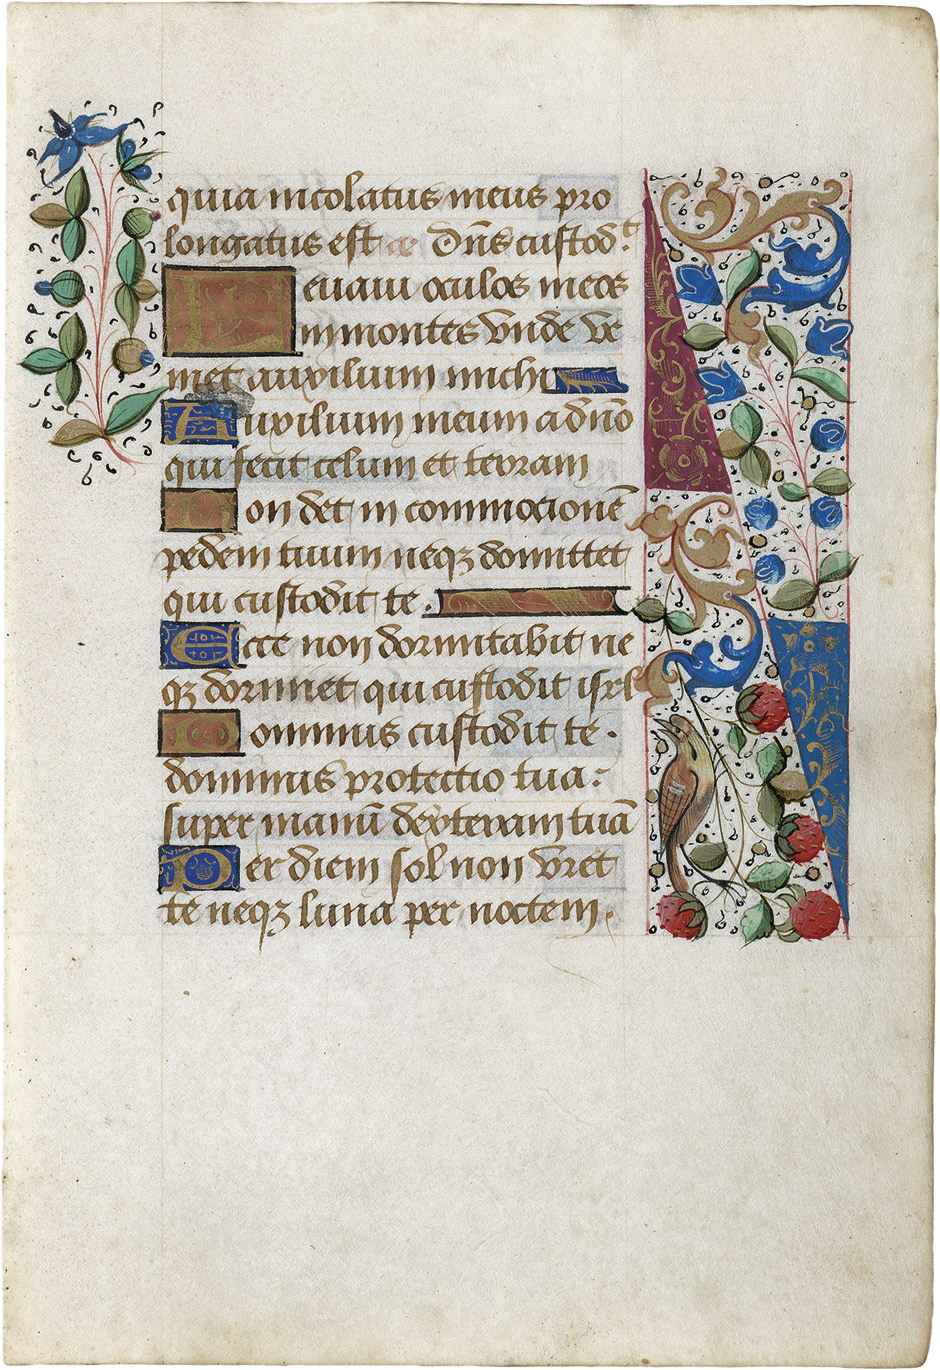 quia incolatus meus pro
longatus est an̄ Dn̄s custod.t
Levaui oculos meos
in montes vnde ve
niet auxilium michi
Auxilium meum a dn̄o
qui fecit celum et terram
Non det in commocionē
pedem tuum neqꝫ dormitet
qui custodit te.
Ecce non dormitabit ne
qꝫ dormiet qui custodit isrl
Dominus custodit te.
dominus protectio tua:
super manū dexteram tuā
Per diem sol non vret
te neqꝫ luna per noctem.